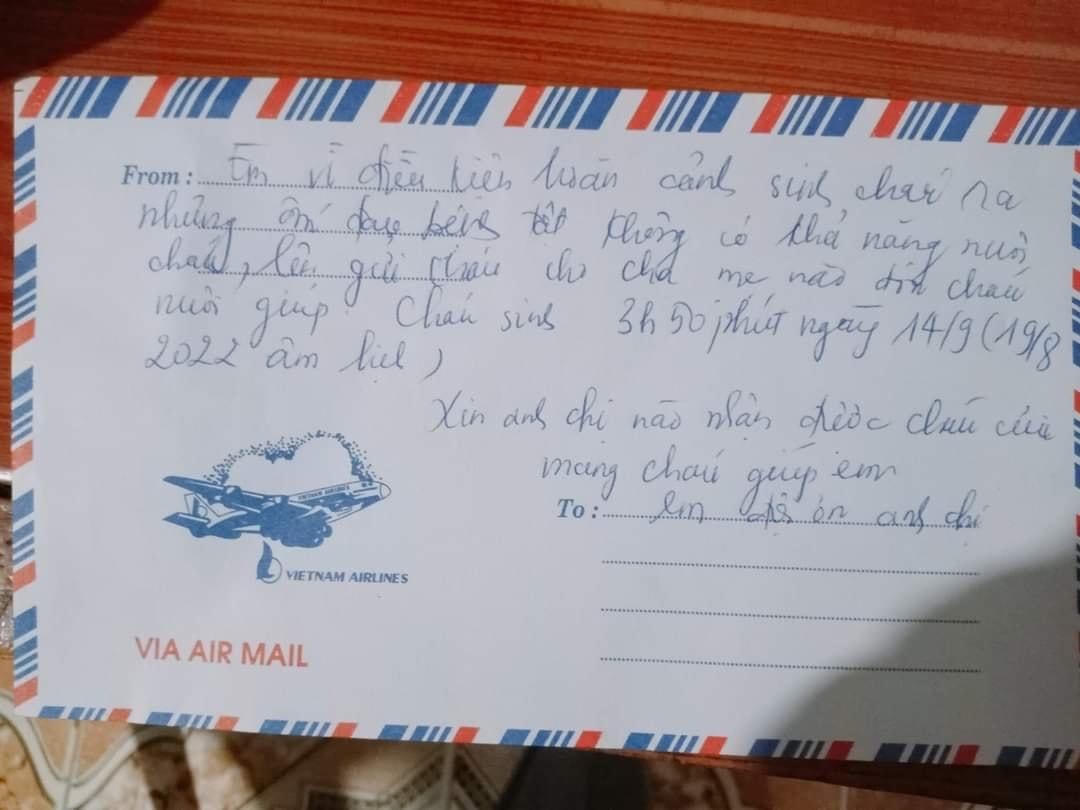 From : Em vì điều kiện hoàn cảnh sinh cháu ra
nhưng ốm đau bệnh tật không có khả năng nuôi
cháu, lên gửi cháu cho cha mẹ nào đón cháu
nuôi giúp. Cháu sinh 3h50 phút ngày 14/9 (19/8
2022 âm lịch)
Xin anh chị nào nhận được cháu cưu
mang cháu giúp em
To : em đội ơn anh chị
VIETNAM AIRLINES
VIETNAM AIRLINES
VIA AIR MAIL